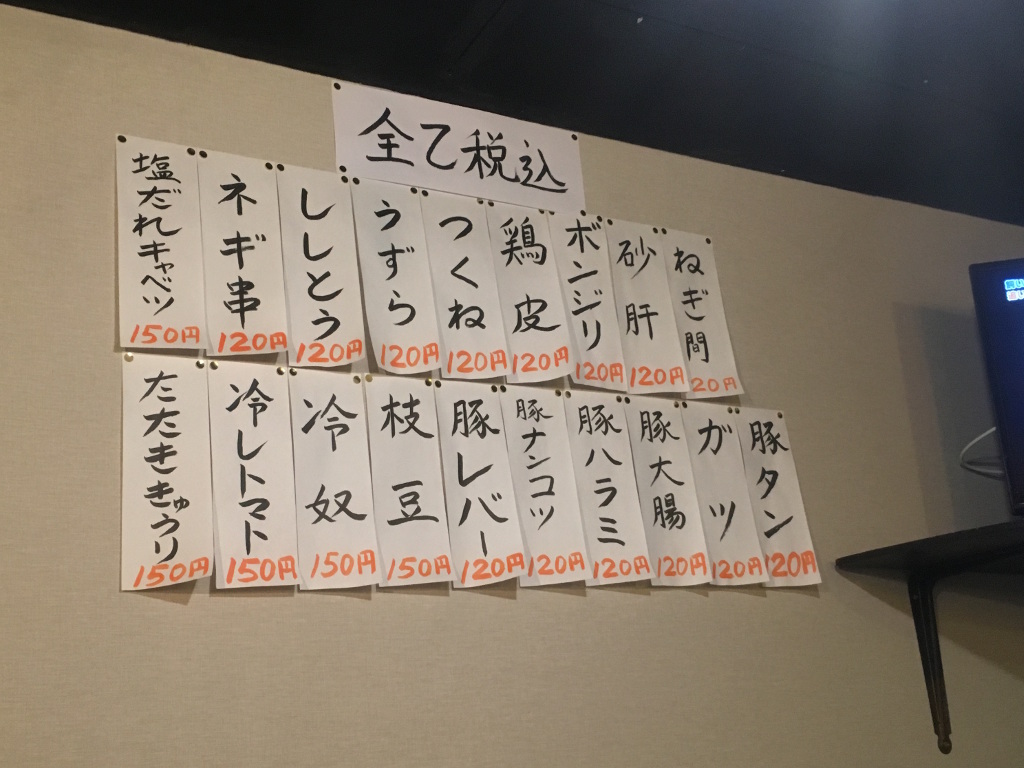 全て税込
ねぎ間
20円
砂肝
120円
ボンジリ
120円
鶏皮
120円
つくね
120円
うずら
120円
ししとう
120円
ネギ串
120円
塩だれキャベツ
150円
豚タン
120円
ガツ
120円
豚大腸
120円
豚ハラミ
120円
豚ナンコツ
120円
豚レバー
120円
枝豆
150円
冷奴
150円
冷しトマト
150円
たたききゅうり
150円